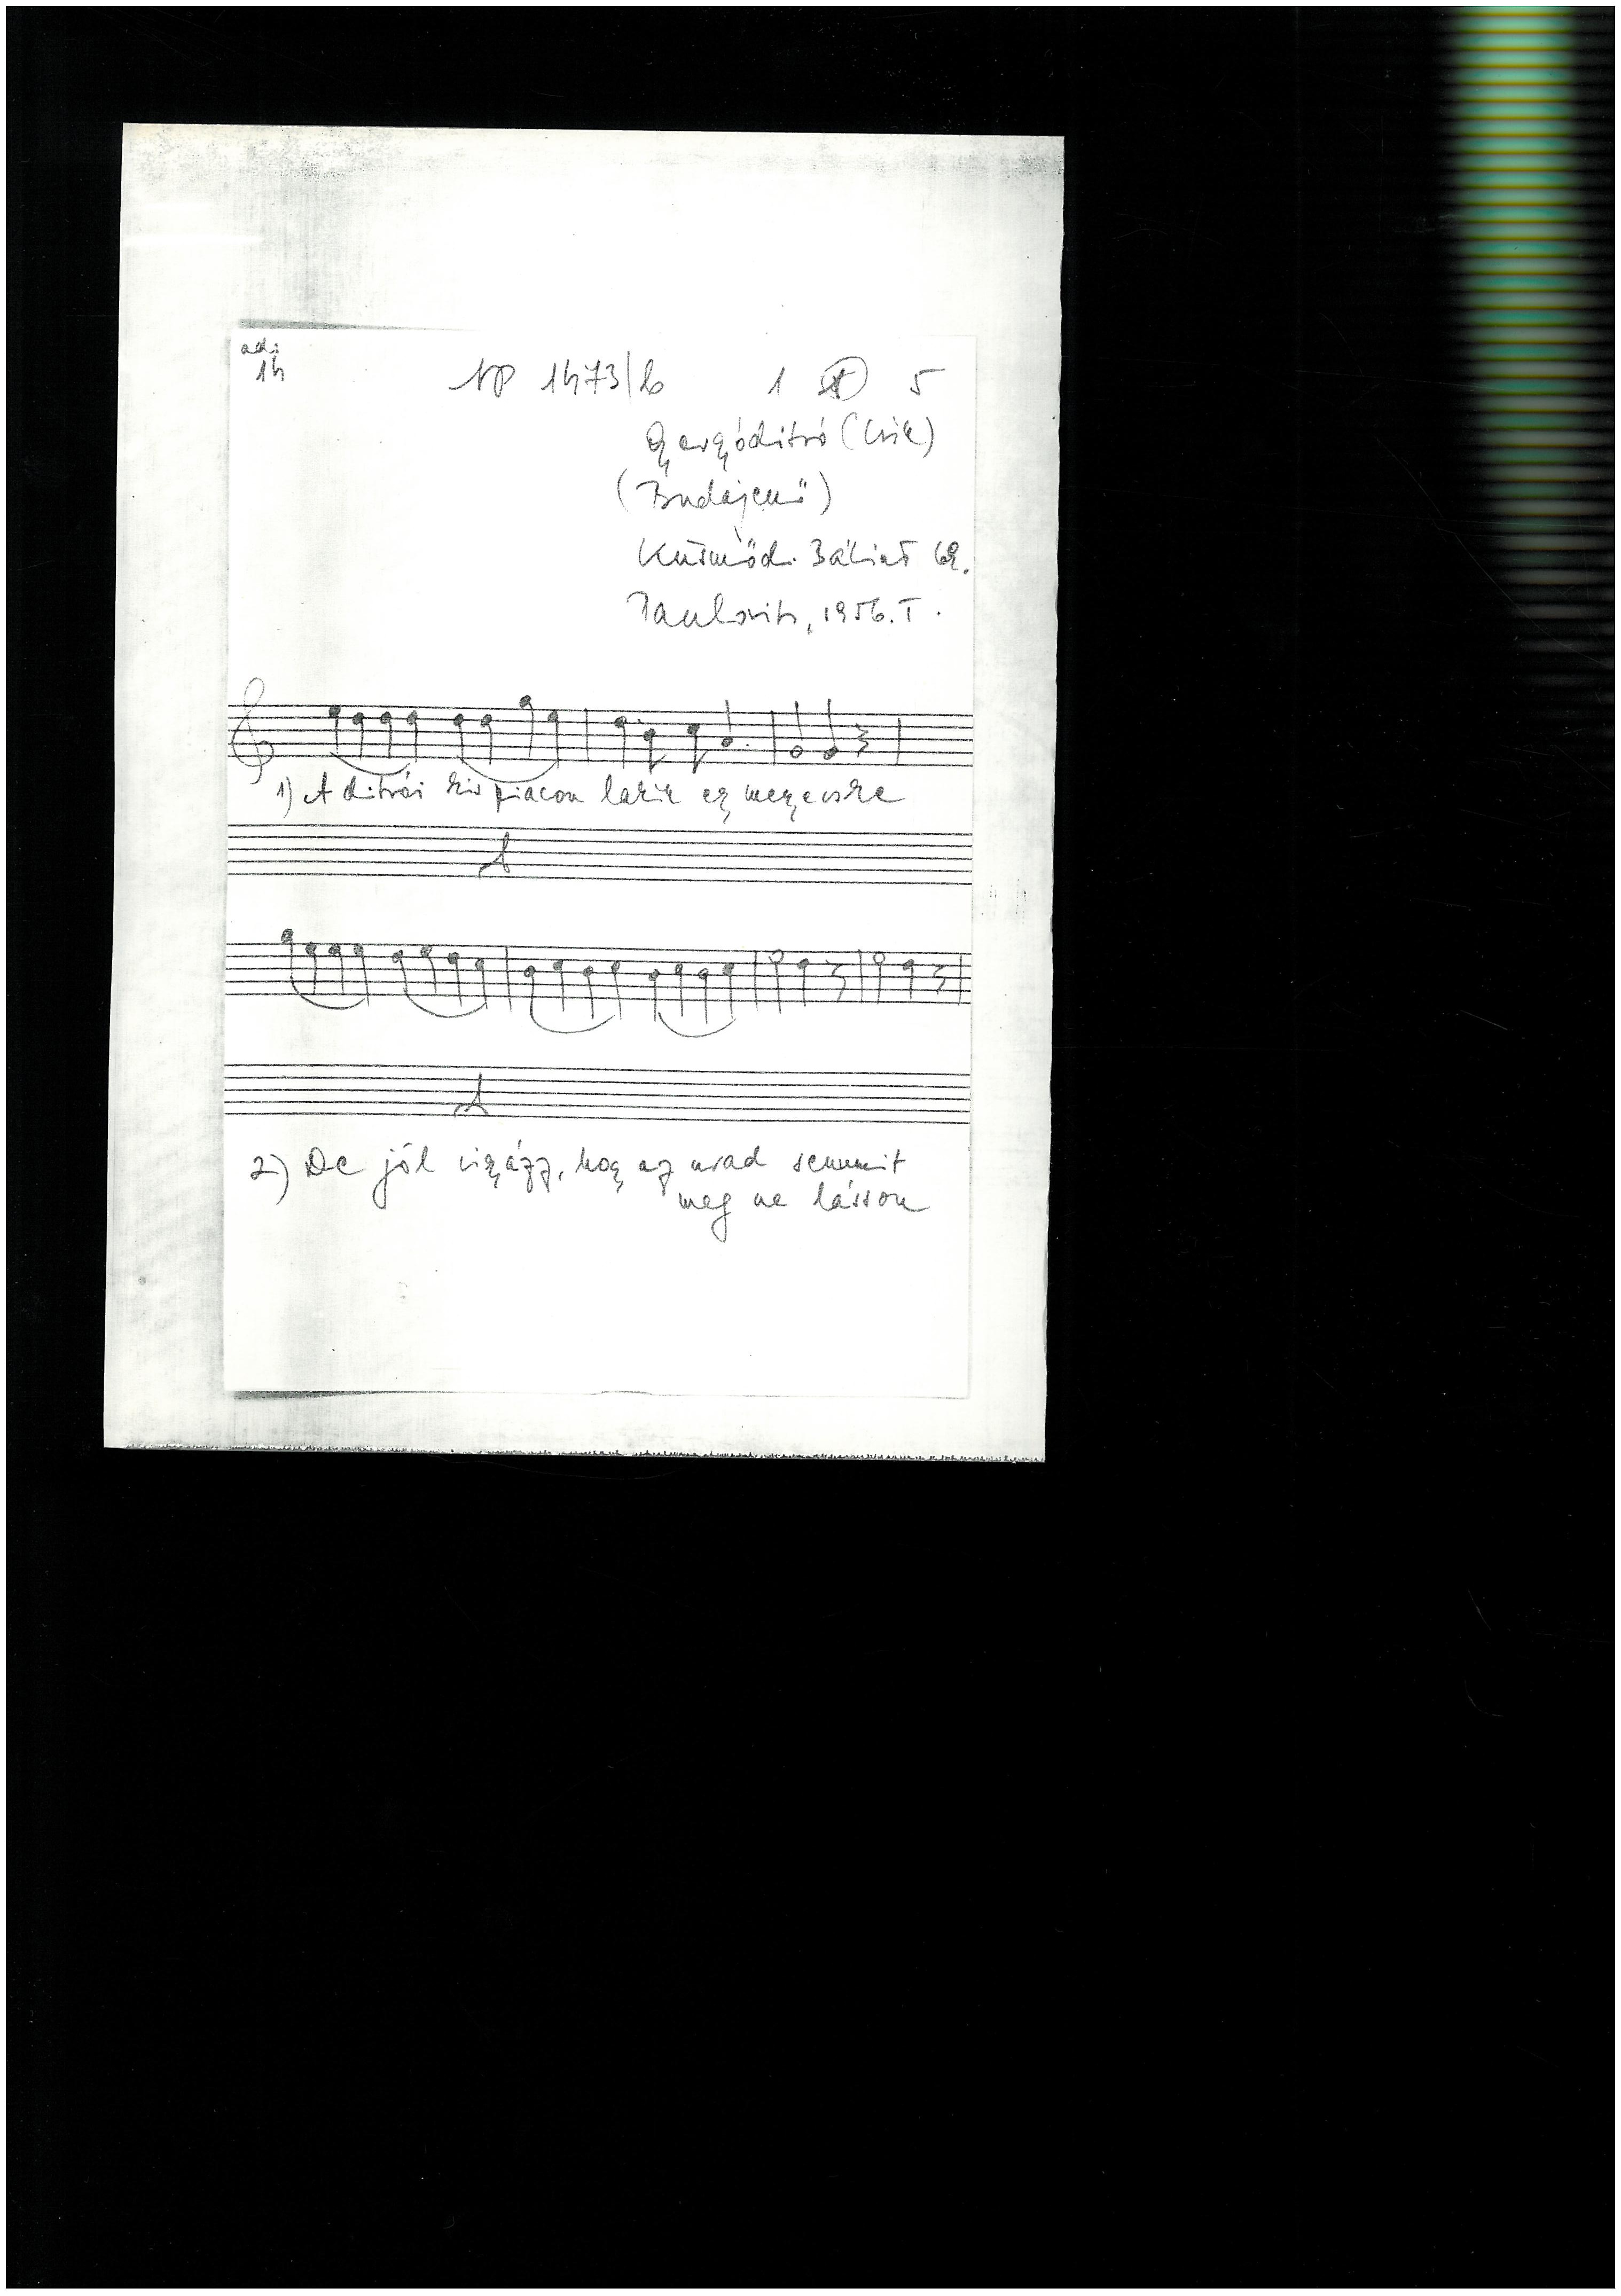 adi
14
NP 1473/b 1 5
Gyergyóditró (Csík)
(Budajenő)
Bálint 69.
Paulovits, 1956. I.
1) A ditrói kis piacon lakik egy menyecske
A
A
2) De jól vigyázz, hogy az urad semmit
meg ne lásson